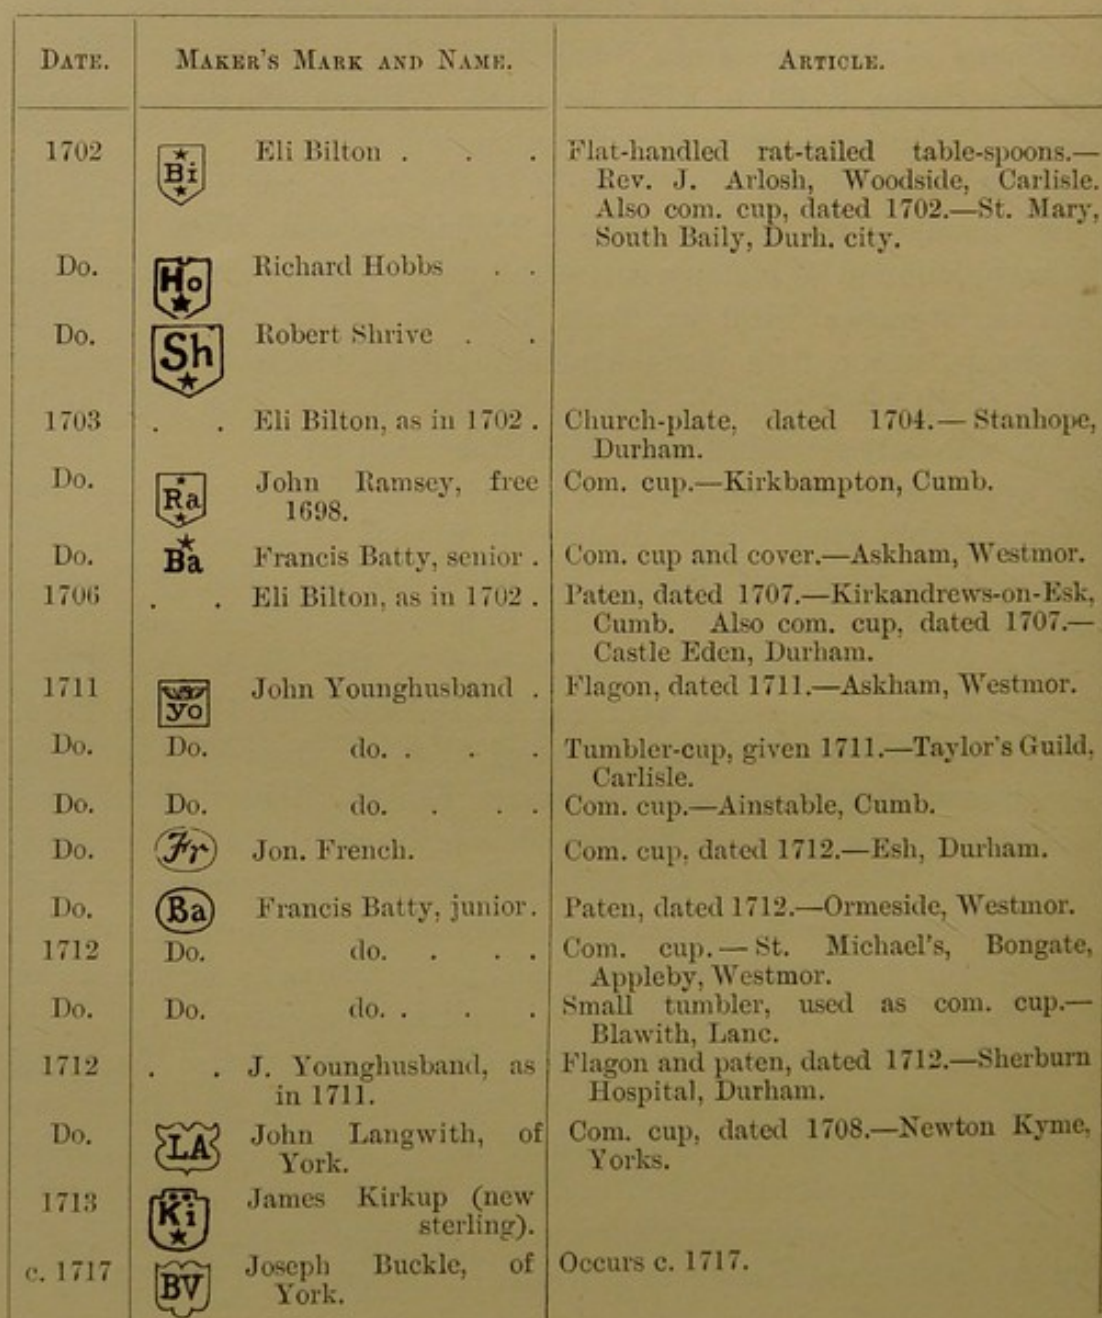 DATE. MAKER'S MARK AND NAME. ARTICLE.
1702 Bi Eli Bilton . . . Flat-handled rat-tailed table-spoons.—
Rev. J. Arlosh, Woodside, Carlisle.
Also com. cup, dated 1702.—St. Mary,
South Baily, Durh. city.
Do. Ho Richard Hobbs . .
Do. Sh Robert Shrive . .
1703 . . Eli Bilton, as in 1702 . Church-plate, dated 1704.—Stanhope,
Durham.
Do. Ra John Ramsey, free Com. cup.—Kirkbampton, Cumb.
1698.
Do. Ba Francis Batty, senior . Com. cup and cover.—Askham, Westmor.
1706 . . Eli Bilton, as in 1702 . Paten, dated 1707.—Kirkandrews-on-Esk,
Cumb. Also com. cup, dated 1707.—
Castle Eden, Durham.
1711 yo John Younghusband . Flagon, dated 1711.—Askham, Westmor.
Do. Do. do. . . . Tumbler-cup, given 1711.—Taylor's Guild,
Carlisle.
Do. Do. do. . . . Com. cup.—Ainstable, Cumb.
Do. Fr Jon. French. Com. cup, dated 1712.—Esh, Durham.
Do. Ba Francis Batty, junior. Paten, dated 1712.—Ormeside, Westmor.
1712 Do. do. . . . Com. cup.—St. Michael's, Bongate,
Appleby, Westmor.
Do. Do. do. . . . Small tumbler, used as com. cup.—
Blawith, Lanc.
1712 . . J. Younghusband, as Flagon and paten, dated 1712.—Sherburn
in 1711. Hospital, Durham.
Do. LA John Langwith, of Com. cup, dated 1708.—Newton Kyme,
York. Yorks.
1713 Ki James Kirkup (new
sterling).
c. 1717 BV Joseph Buckle, of Occurs c. 1717.
York.